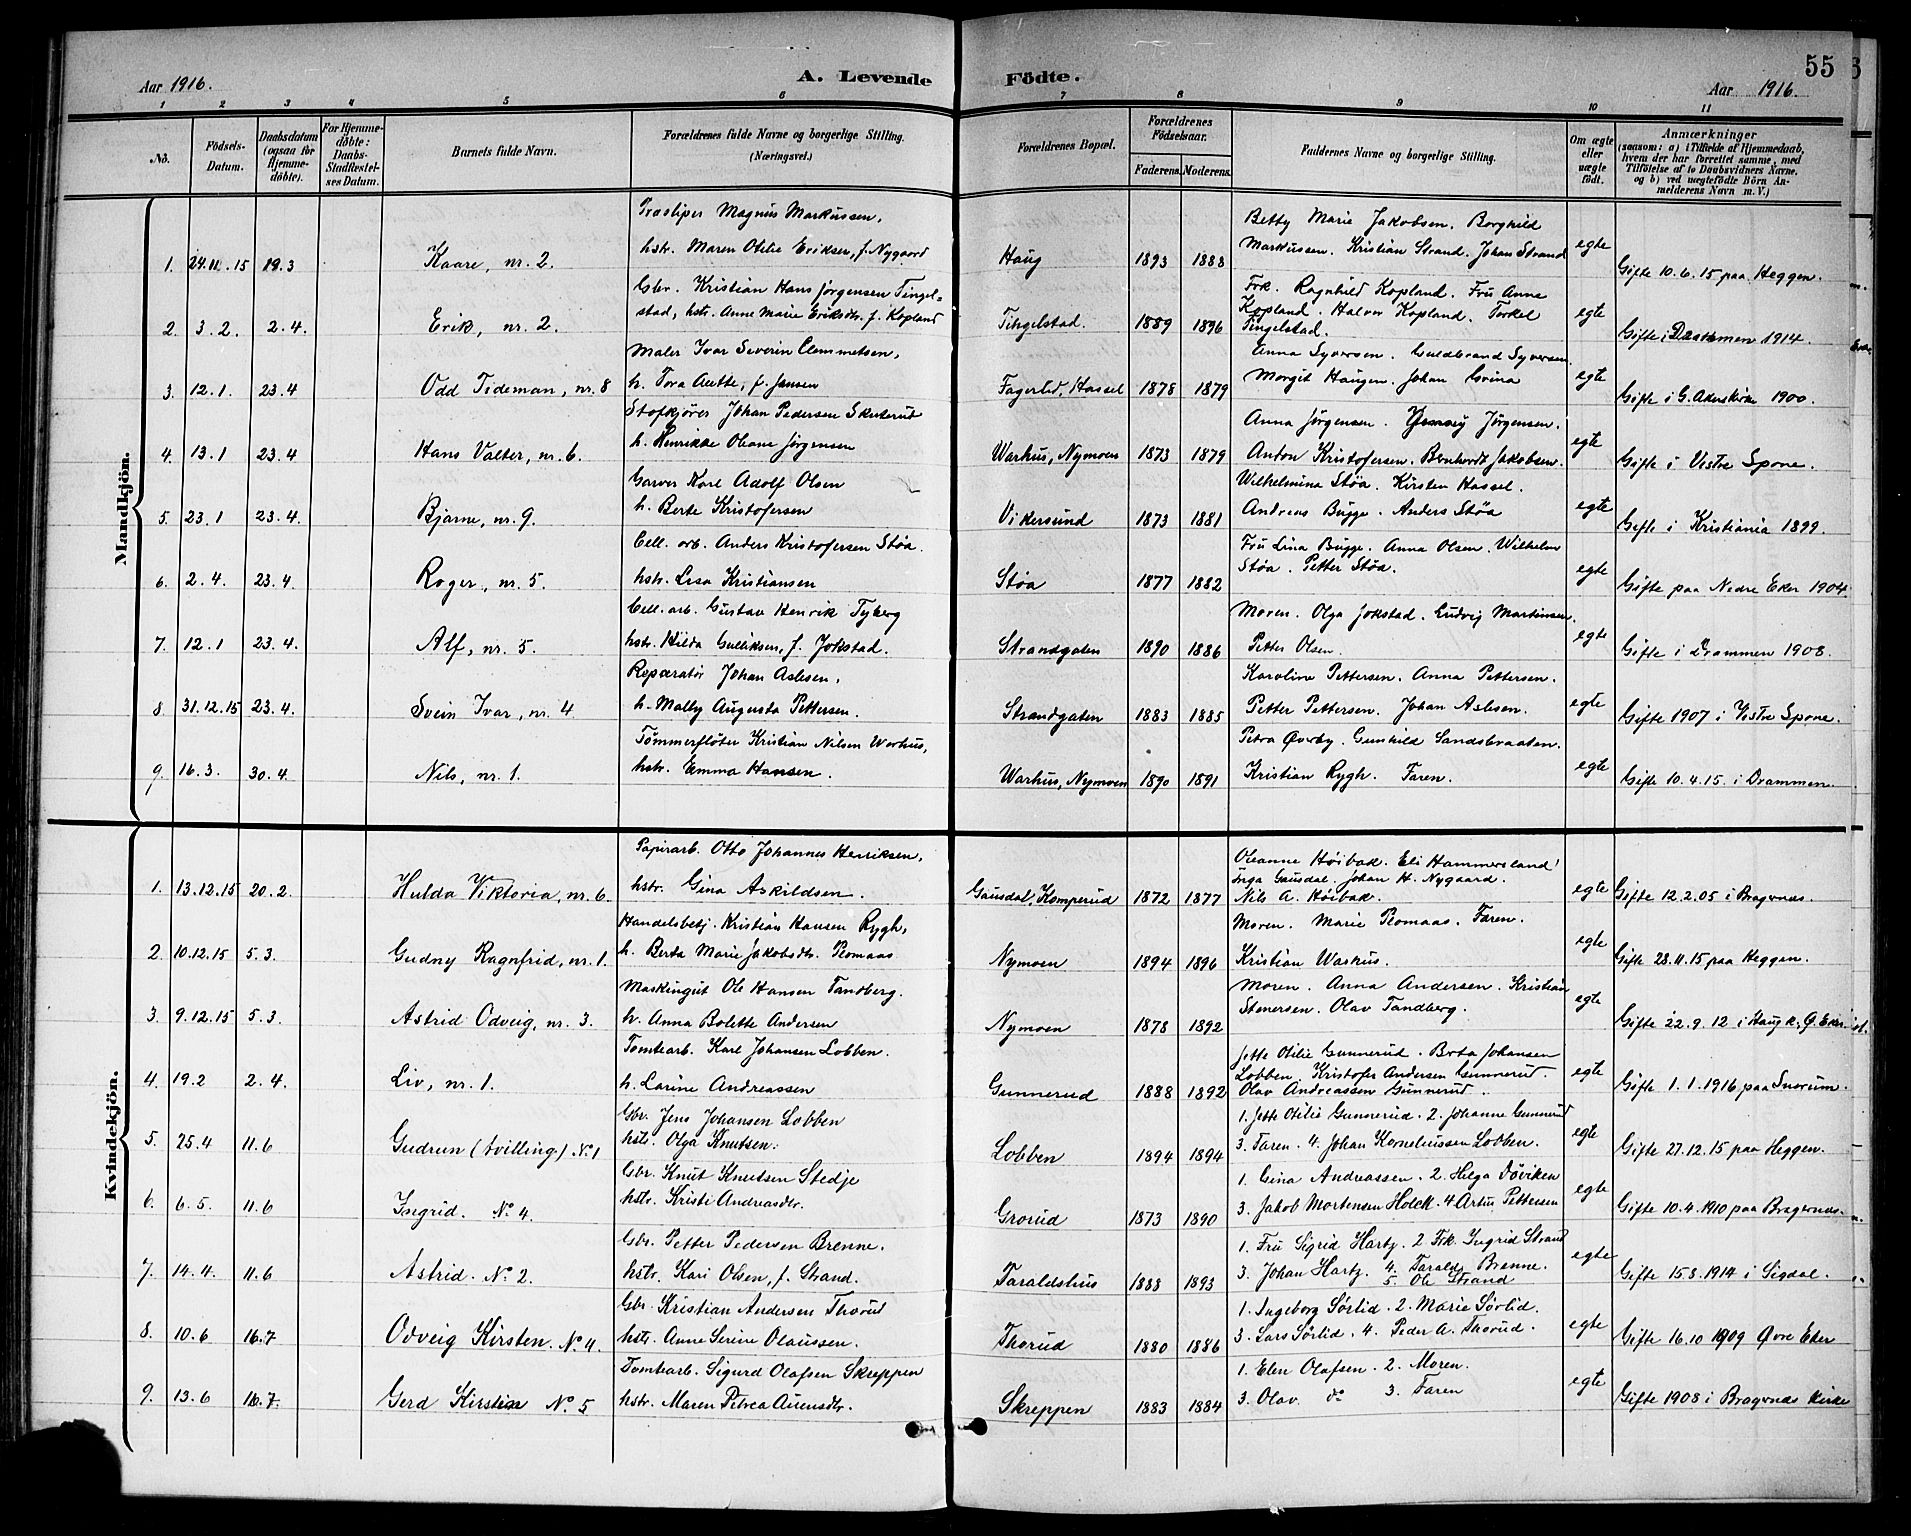 Aar 1916.
A. Levende Födte.
55
Aar 1916.
1 2 3 4 5 6 7 8 9 10 11
Nö.
Födsels-Datum.
Daabsdatum (ogsaa for Hjemme-döbte).
For Hjemme-döbte: Daabs-Stadfæstel-ses Datum.
Barnets fulde Navn.
Forældrenes fulde Navne og borgerlige Stilling.
(Næringsvei.)
Forældrenes Bopæl.
Forældrenes Födselsaar.
Faderens. Moderens.
Faddernes Navne og borgerlige Stilling.
Om ægte eller uægte födt.
Anmærkninger
(saasom: a) i Tilfælde af Hjemmedaab,
hvem der har forrettet samme, med
Tilföielse af to Daabsvidners Navne,
og b) ved uægtefödte Börn An-
melderens Navn m. V.)
Mandkjön.
Træsliper Magnus Markussen, Betty Marie Jakobsen. Borghild
1. 24.11.15 19.3 Kaare, nr. 2. hstr. Maren Otilie Eriksen, f. Nygaard Haug 1893 1888 Markussen. Kristian Strand. Johan Strand egte Gifte 10.6.15 paa Heggen.
Gbr. Kristian Hans Jørgensen Tingel= Frk. Ragnhild Kopland. Fru Anna
2. 3.2. 2.4. Erik, nr. 2. stad, hstr. Anne Marie Eriksdtr. f. Kopland Tingelstad. 1889 1896 Kopland. Halvor Kopland. Torkel Tingelstad. egte Gifte i Drammen 1914.
Maler Ivar Severin Clemmetsen, Anna Syversen. Guldbrand Syversen
3. 12.1. 23.4 Odd Tideman, nr. 8 h. Tora Aette, f. Jansen Fagerlid, Hassel 1878 1879 Margit Haugen. Johan egte Gifte i G. Akerskirke 1900.
Stofkjører Johan Pedersen Skuterud Anna Jørgensen. Jørgensen.
4. 13.1 23.4 Hans Valter, nr. 6. h. Henrikke Oleane Jørgensen Warhus, Nymoen 1873 1879 Anton Kristofersen. Bernhardt Jakobsen. egte Gifte i Vestre Spone.
Garver Karl Adolf Olsen Wilhelmina Støa. Kirsten Hassel.
5. 23.1 23.4. Bjarne, nr. 9. h. Berte Kristofersen Vikersund 1873 1881 Andreas Bugge. Anders Støa egte Gifte i Kristiania 1899.
Cell. arb. Anders Kristofersen Støa. Fru Lina Bugge. Anna Olsen. Wilhelm
6. 2.4. 23.4. Roger, nr. 5. hstr. Lisa Kristiansen Støa 1877 1882 Støa. Petter Støa. egte Gifte paa Nedre Eker 1904.
Cell. arb. Gustav Henrik Tyberg Moren. Olga Jokstad. Ludvig Martinsen.
7. 12.1 23.4. Alf, nr. 5. hstr. Hilda Gulliksen, f. Jokstad. Strandgaten 1890 1886 Petter Olsen. egte Gifte i Drammen 1908.
Reparatør Johan Aslesen, Karoline Pettersen. Anna Pettersen.
8 31.12.15 23.4. Svein Ivar, nr. 4 h. Mally Augusta Pettersen. Strandgaten 1883 1885 Petter Pettersen. Johan Aslesen. egte Gifte 1907 i Vestre Spone.
Tømmerfløter Kristian Nilsen Warhus, Petra Øverby. Gunhild Sandsbraaten.
9. 16.3. 30.4. Nils, nr. 1. hstr. Emma Hansen. Warhus, Nymoen 1890 1891 Kristian Rygh. Faren. egte Gifte 10.4.15. i Drammen.
Kvindekjön.
Papirarb. Otto Johannes Henriksen, Oleanne Høibak. Eli Hammersland
1. 13.12.15 20.2. Hulda Viktoria, nr. 6. hstr. Gina Askildsen. Gausdal, Komperud 1872 1877 Inga Gausdal. Johan H. Nygaard. Nils A. Høibak. egte Gifte 12.2.05 i Bragernæs.
Handelsbetj. Kristian Hansen Rygh, Moren. Marie Plomaas. Faren.
2 10.12.15 5.3. Gudny Ragnfrid, nr. 1. h. Berta Marie Jakobsdtr. Plomaas Nymoen 1894 1896 Kristian Warhus. egte Gifte 28.11.15 paa Heggen.
Maskingut Ole Hansen Tandberg. Moren. Anna Andersen. Kristian
3. 9.12.15 5.3. Astrid Odveig, nr. 3. h. Anna Bolette Andersen Nymoen 1878 1892 Stenersen. Olav Tandberg. egte Gifte 22.9.12 i Haug k. Ø. Eker
Tomtearb. Karl Johansen Lobben. Jette Otilie Gunnerud. Berta Johansen
4. 19.2 2.4. Liv, nr. 1. h. Larine Andreassen Gunnerud 1888 1892 Lobben. Kristofer Andersen Gunnerud. Olav Andreassen Gunnerud. egte Gifte 1.1.1916 paa Snarum.
Gbr. Jens Johansen Lobben 1. Jette Otilie Gunnerud. 2. Johanne Gunnerud
5. 25.4 11.6 Gudrun (tvilling) No. 1 hstr. Olga Knutsen. Lobben 1894 1894 3. Faren. 4. Johan Korneliussen Lobben. egte Gifte 27.12.15 paa Heggen.
Gbr. Knut Knutsen Stedje 1. Gina Andreassen. 2. Helga Døviken
6. 6.5. 11.6 Ingrid. No. 4. hstr. Kristi Andreasdtr. Grorud 1873 1890 3. Jakob Mortensen Holck. 4 Artur Pettersen egte Gifte 10.4.1910 paa Bragernæs.
Gbr. Petter Pedersen Brenne. 1. Fru Sigrid Hartz. 2 Frk. Ingrid Strand
7. 14.4. 11.6 Astrid. No. 2. hstr. Kari Olsen, f. Strand. Taraldshus 1888 1893 3. Johan Hartz. 4. Taralds Brenne. 5. Ole Strand egte Gifte 15.8.1914 i Sigdal.
Gbr. Kristian Andersen Thorud 1. Ingeborg Sørlid. 2. Marie Sørlid.
8. 10.6 16.7 Odveig Kirsten. No. 4. hstr. Anne Serine Olaussen. Thorud 1880 1886 3. Lars Sørlid. 4. Peder A. Thorud. egte Gifte 16.10 1909 Øvre Eker
Tomtearb. Sigurd Olafsen Skreppen 1. Elen Olafsen. 2. Moren.
9. 13.6 16.7 Gerd Kirsten No. 5 hstr. Maren Petrea Auensdtr. Skreppen 1883 1884 3. Olav do 3. Faren egte Gifte 1908 i Bragernæs kirke